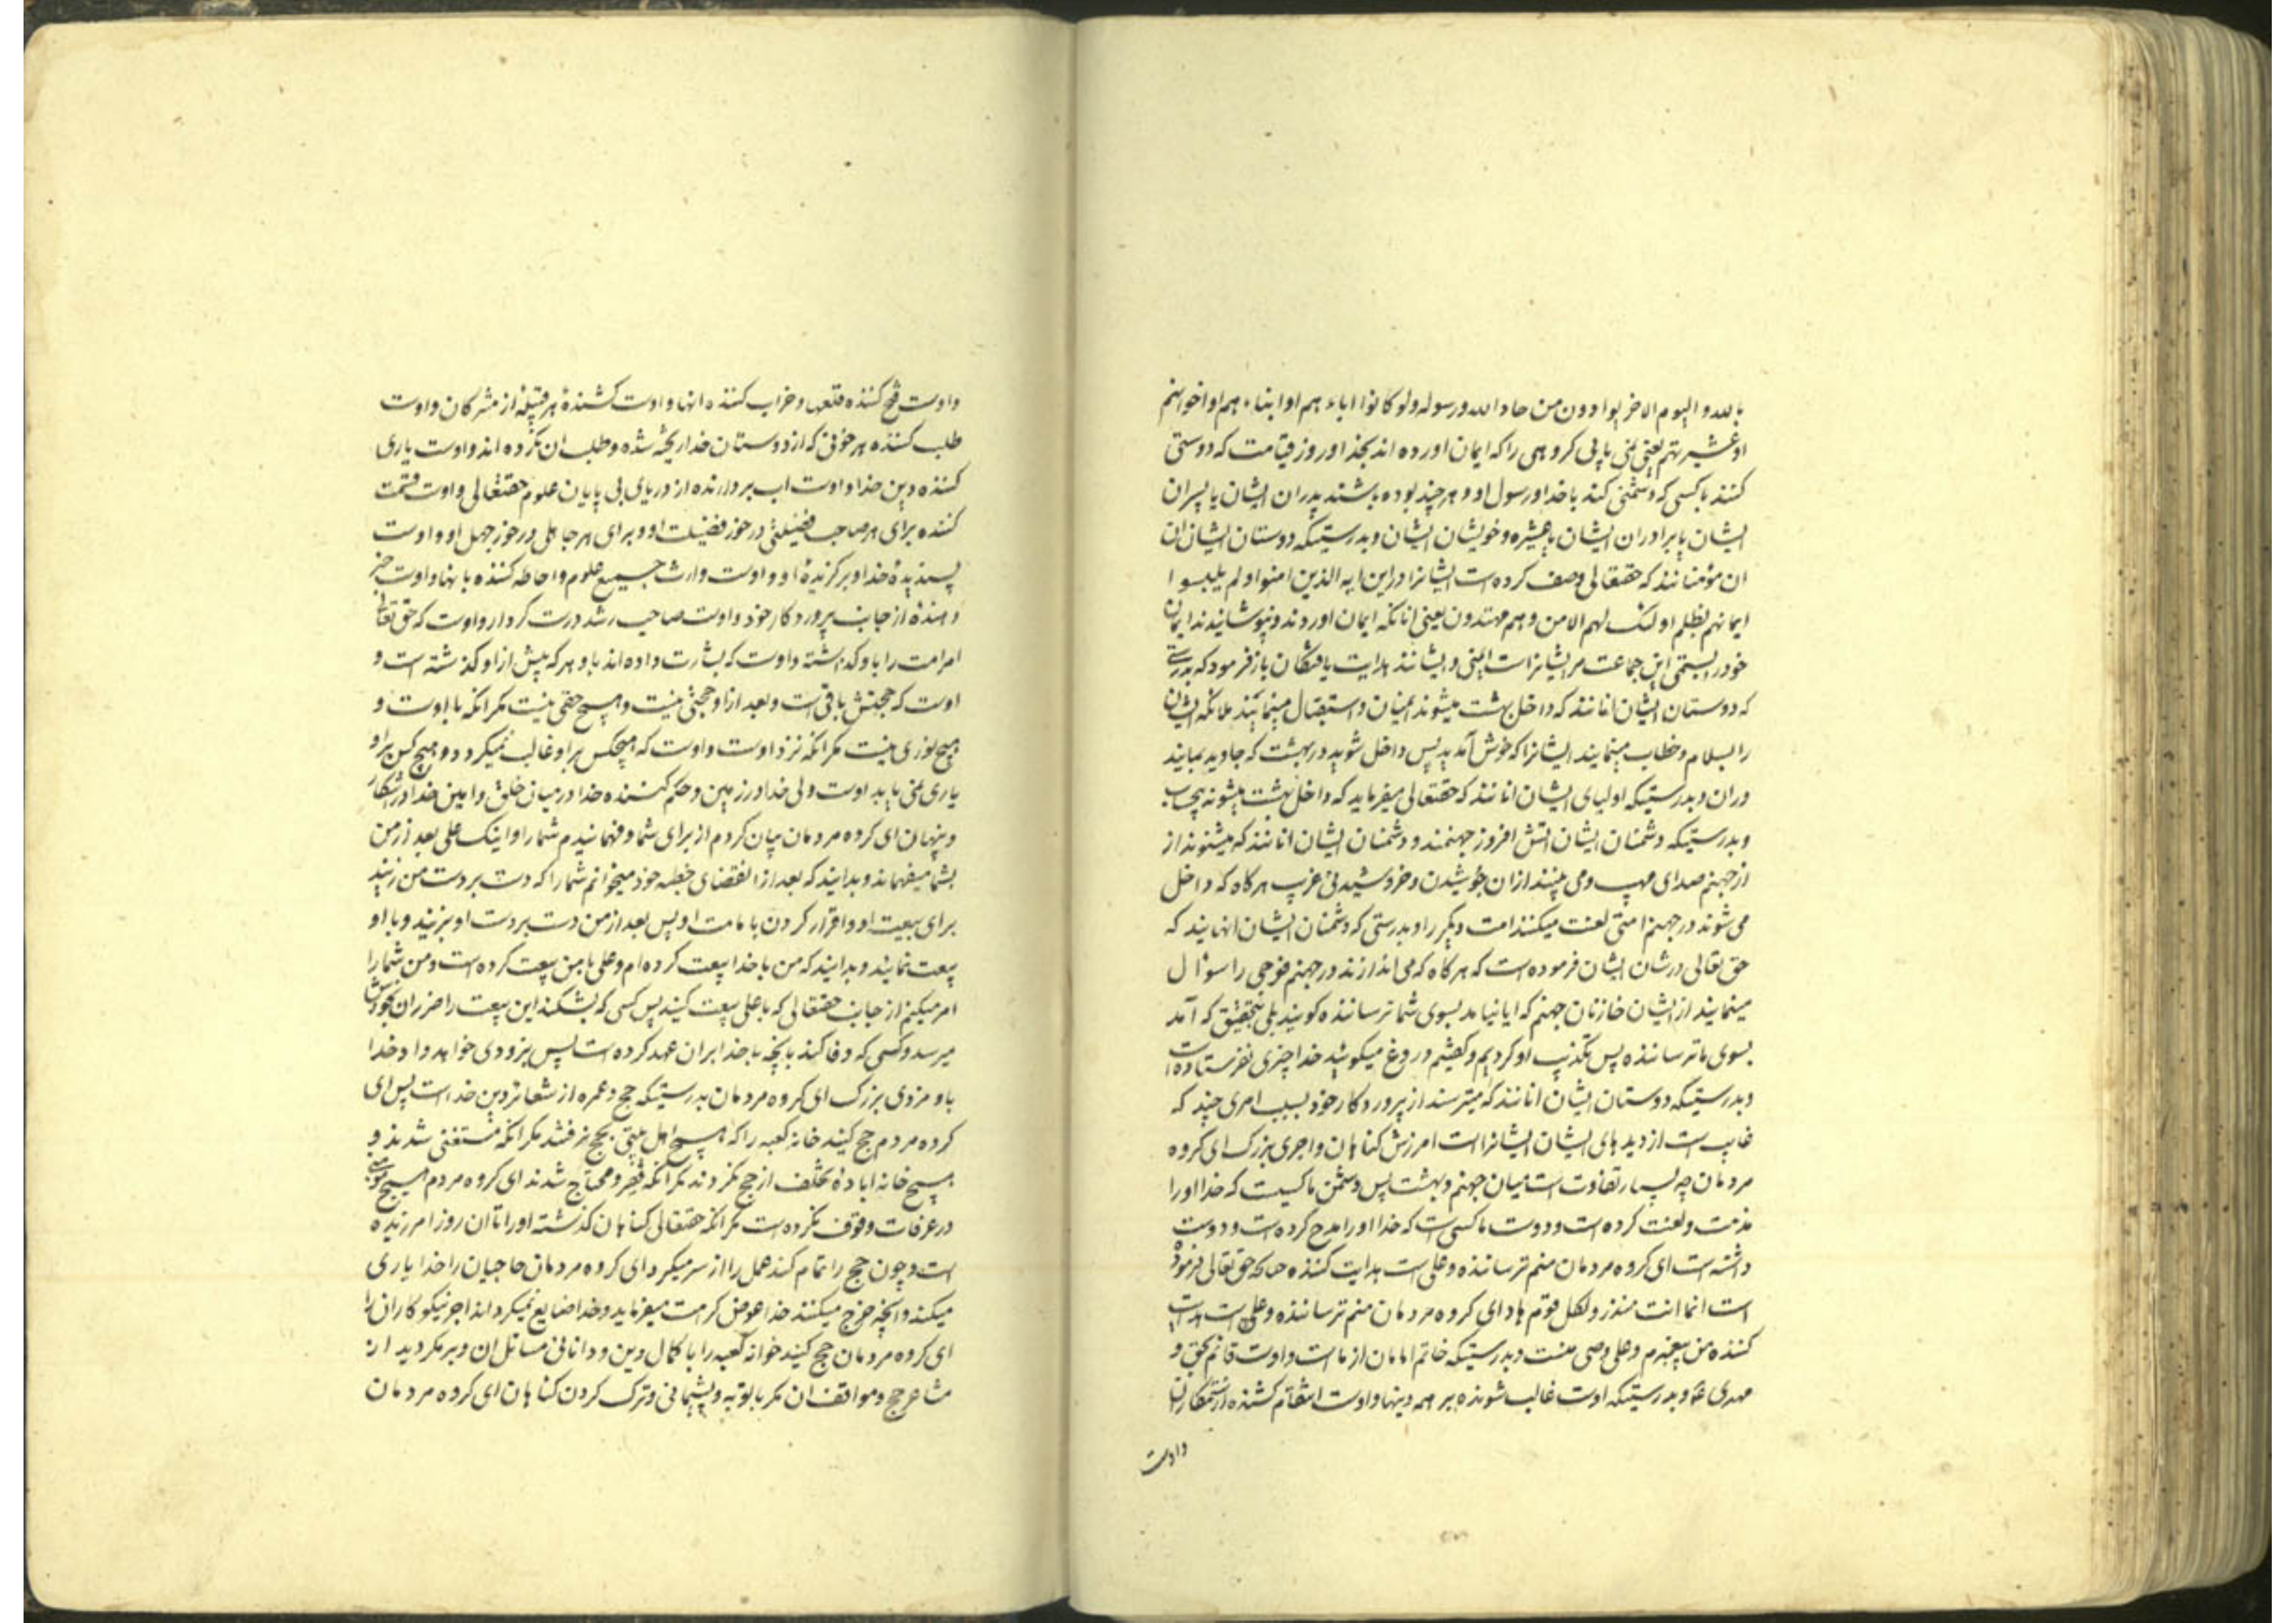 بالله و الیوم الاخر یوادون من حاد الله و رسوله ولو کانوا اباء هم او ابناء هم او اخوانهم
او عشیرتهم یعنی نمی یابی کروهی را که ایمان اورده اند بخدا و روز قیامت که دوستی
کنند با کسی که دشمنی کند با خدا و رسول او و هر چند بوده باشند پدران ایشان یا پسران
ایشان یا برادران ایشان یا عشیره و خویشان ایشان و بدرستیکه دوستان ایشان ان
ان مؤمنانند که حقتعالی وصف کرده است ایشانرا در این ایه الذین امنوا و لم یلبسوا
ایمانهم بظلم اولئک لهم الامن و هم مهتدون یعنی انانکه ایمان اوردند و نپوشانیدند ایمان
خود را بستمی این جماعت مر ایشانراست ایمنی و ایشانند هدایت یافتگان باز فرمود که بدرستی
که دوستان ایشان انانند که داخل بهشت میشوند ایمنان و استقبال مینمایند ملائکه ایشان
را بسلام و خطاب مینمایند ایشانرا که خوش آمدید پس داخل شوید در بهشت که جاوید بمانید
در ان و بدرستیکه اولیای ایشان انانند که حقتعالی میفرماید که داخل بهشت میشوند بیحساب
و بدرستیکه دشمنان ایشان اتش افروز جهنمند و دشمنان ایشان انانند که میشنوند از
از جهنم صدای مهیب و می بینند از ان جوشیدن و خروشیدنی غریب هر کاه که داخل
می شوند در جهنم امتی لعنت میکنند امت دیگر را و بدرستی که دشمنان ایشان انهایند که
حق تعالی در شان ایشان فرموده است که هر کاه که می اندازند در جهنم فوجی را سؤال
مینمایند از ایشان خازنان جهنم که ایا نیامد بسوی شما ترساننده کویند بلی بتحقیق که آمد
بسوی ما ترساننده پس تکذیب او کردیم و کفتیم دروغ میکوئید خدا چیزی نفرستاده است
و بدرستیکه دوستان ایشان انانند که میترسند از پروردکار خود بسبب امری چند که
غایب است از دیدهای ایشان ایشانراست امرزش کناهان و اجری بزرک ای کروه
مردمان چه بسیار تفاوت است میان جهنم و بهشت پس دشمن ما کسیست که خدا او را
مذمت و لعنت کرده است و دوست ما کسی است که خدا او را مدح کرده است و دوست
داشته است ای کروه مردمان منم ترساننده و علی است هدایت کننده چنانکه حق تعالی فرموده
است انما انت منذر و لکل قوم هاد ای کروه مردمان منم ترساننده و علی است هدایت
کننده من پیغمبرم و علی وصی منست و بدرستیکه خاتم امامان از ما است و اوست قائم بحق و
مهدی ع و بدرستیکه اوست غالب شونده بر همه دینها و اوست انتقام کشنده از ستمکاران
و اوست
و اوست فتح کننده قلعها و خراب کننده انها و اوست کشندهٔ هر قبیلهٔ از مشرکان و اوست
طلب کننده هر خونی که از دوستان خدا ریخته شده و طلب ان نکرده اند و اوست یاری
کننده دین خدا و اوست اب بردارنده از دریای بی پایان علوم حقتعالی و اوست قسمت
کننده برای هر صاحب فضیلتی در خور فضیلت او و برای هر جاهلی در خور جهل او و اوست
پسندیدهٔ خدا و برکزیدهٔ او و اوست وارث جمیع علوم و احاطه کننده بانها و اوست خبر
دهندهٔ از جانب پروردکار خود و اوست صاحب رشد درست کردار و اوست که حق تعالی
امر امت را باو کذاشته و اوست که بشارت داده اند باو هر که پیش از او کذشته است و
اوست که حجتش باقیست و بعد از او حجتی نیست و هیچ حقی نیست مکر انکه با اوست و
هیچ نوری نیست مکر انکه نزد اوست و اوست که هیچکس بر او غالب نمیکردد و هیچ کس بر او
یاری نمی یابد اوست ولی خدا در زمین و حکم کننده خدا در میان خلق و امین خدا در اشکار
و پنهان ای کروه مردمان بیان کردم از برای شما و فهمانیدم شما را و اینک علی بعد از من
بشما میفهماند و بدانید که بعد از انقضای خطبه خود میخوانم شما را که دست بر دست من زنید
برای بیعت او و اقرار کردن بامامت او پس بعد از من دست بر دست او بزنید و با او
بیعت نمائید و بدانید که من با خدا بیعت کرده ام و علی با من بیعت کرده است و من شما را
امر میکنم از جانب حقتعالی که با علی بیعت کنید پس کسی که بشکند این بیعت را ضرر ان بخودش
میرسد و کسی که وفا کند بانچه با خدا بر ان عهد کرده است پس بزودی خواهد داد خدا
باو مزدی بزرک ای کروه مردمان بدرستیکه حج و عمره از شعائر دین خداست پس ای
کروه مردم حج کنید خانه کعبه را که هیچ اهل بیتی بحج نرفتند مکر انکه مستغنی شدند و
هیچ خانه ابادهٔ تخلف از حج نکردند مکر انکه فقیر و محتاج شدند ای کروه مردم هیچ مؤمنی
در عرفات وقوف نکرده است مکر انکه حقتعالی کناهان کذشته او را تا ان روز امرزیده
است و چون حج را تمام کند عمل را از سر میکیرد ای کروه مردمان حاجیان را خدا یاری
میکند و انچه خرج میکنند خدا عوض کرامت میفرماید و خدا ضایع نمیکرداند اجر نیکوکاران را
ای کروه مردمان حج کنید خوانه کعبه را با کمال دین و دانائی مسائل ان و بر مکردید از
مشاعر حج و مواقف ان مکر بتوبه و پشیمانی و ترک کردن کناهان ای کروه مردمان